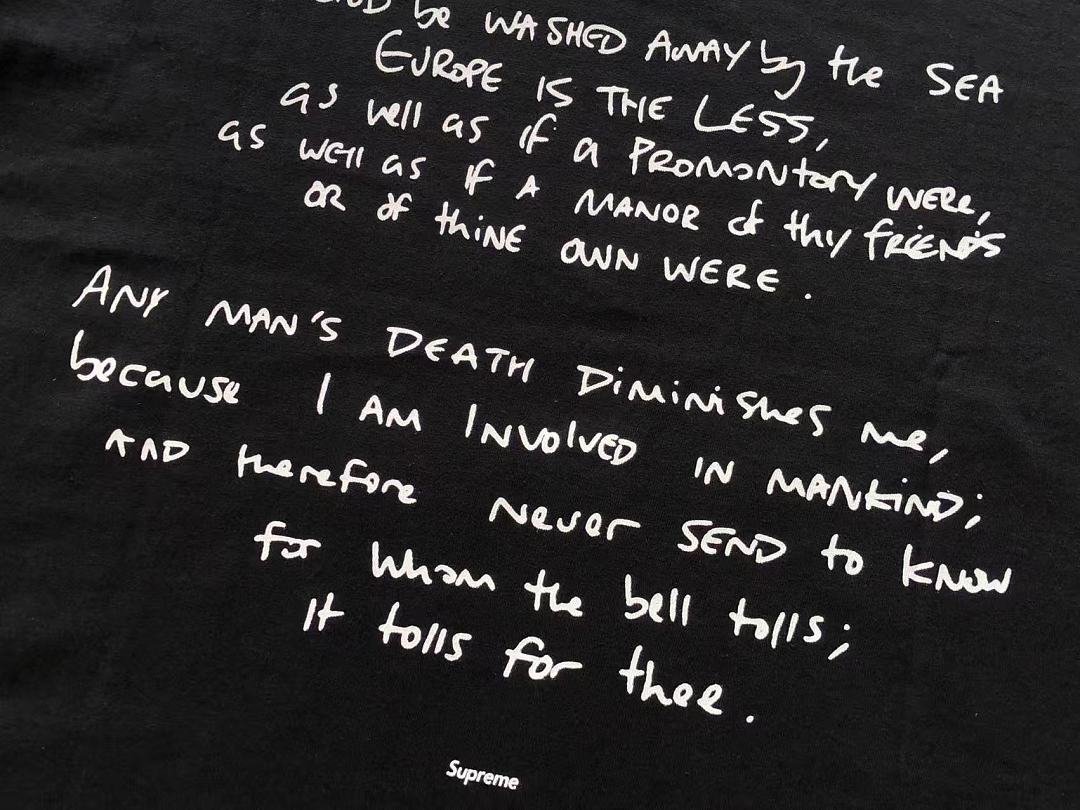 be WASHED AWAY by the SEA
EUROPE IS THE LESS,
as well as if a PROMONTORY WERE,
as well as if A MANOR of thy FRiENDS
OR of thiNE OWN WERE.
ANY MAN'S DEATH DiMiNiShes me,
because I AM INVOlVED IN MANKiND;
AND therefore Never SEND to KNOW
for Whom the bell tolls;
It tolls for thee.
Supreme